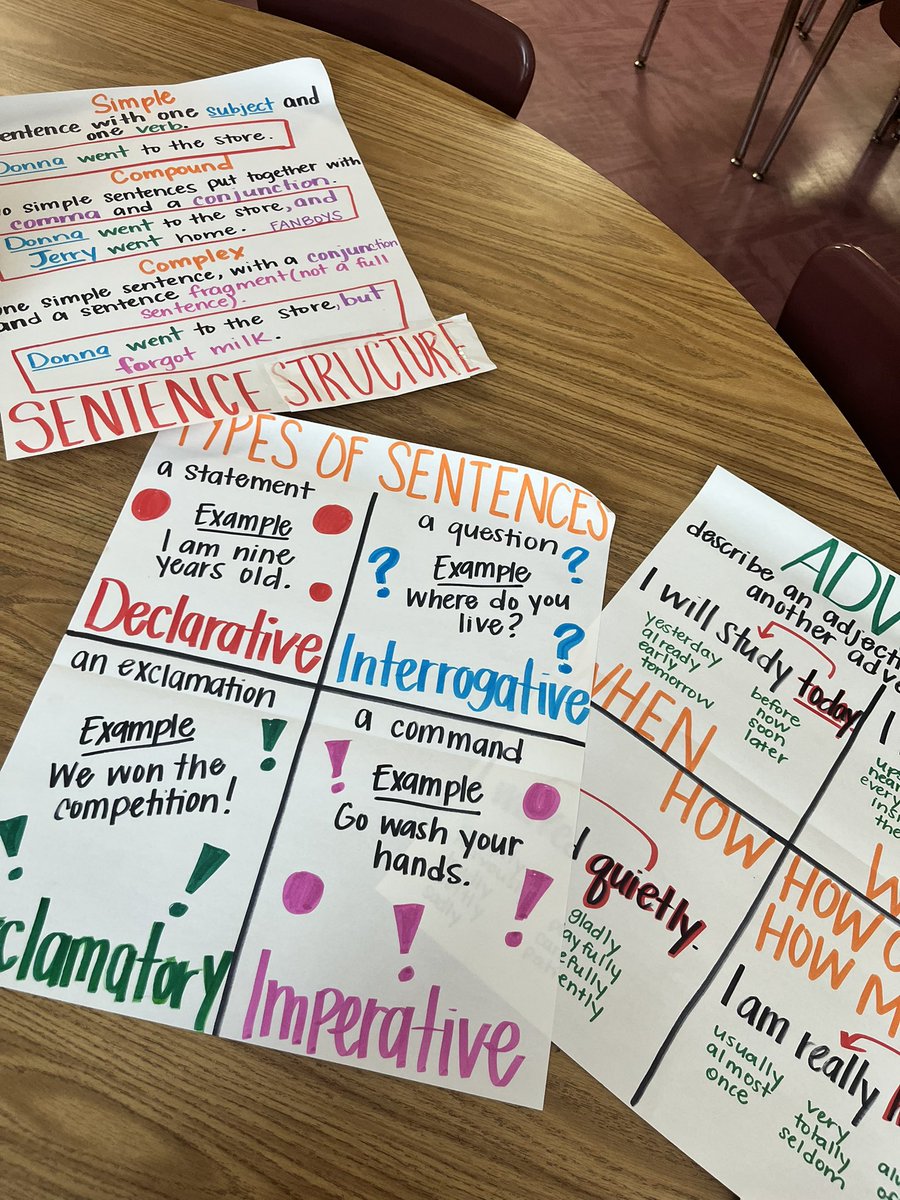 Simple
sentence with one subject and
one verb.
Donna went to the store.
Compound
two simple sentences put together with
comma and a conjunction.
Donna went to the store, and
Jerry went home. FANBOYS
Complex
one simple sentence, with a conjunction
and a sentence fragment (not a full
sentence).
Donna went to the store, but
forgot milk.
SENTENCE STRUCTURE
TYPES OF SENTENCES
a statement
Example
I am nine
years old.
Declarative
a question
Example
Where do you
live?
Interrogative
an exclamation
Example
We won the
competition!
clamatory
a command
Example
Go wash your
hands.
Imperative
ADV
describe an
another
I will study today.
yesterday
already
early
tomorrow
before
now
soon
later
WHEN
I
HOW
quietly.
gladly
HOW
HOW
I am really
usually
almost
once
very
totally
seldom